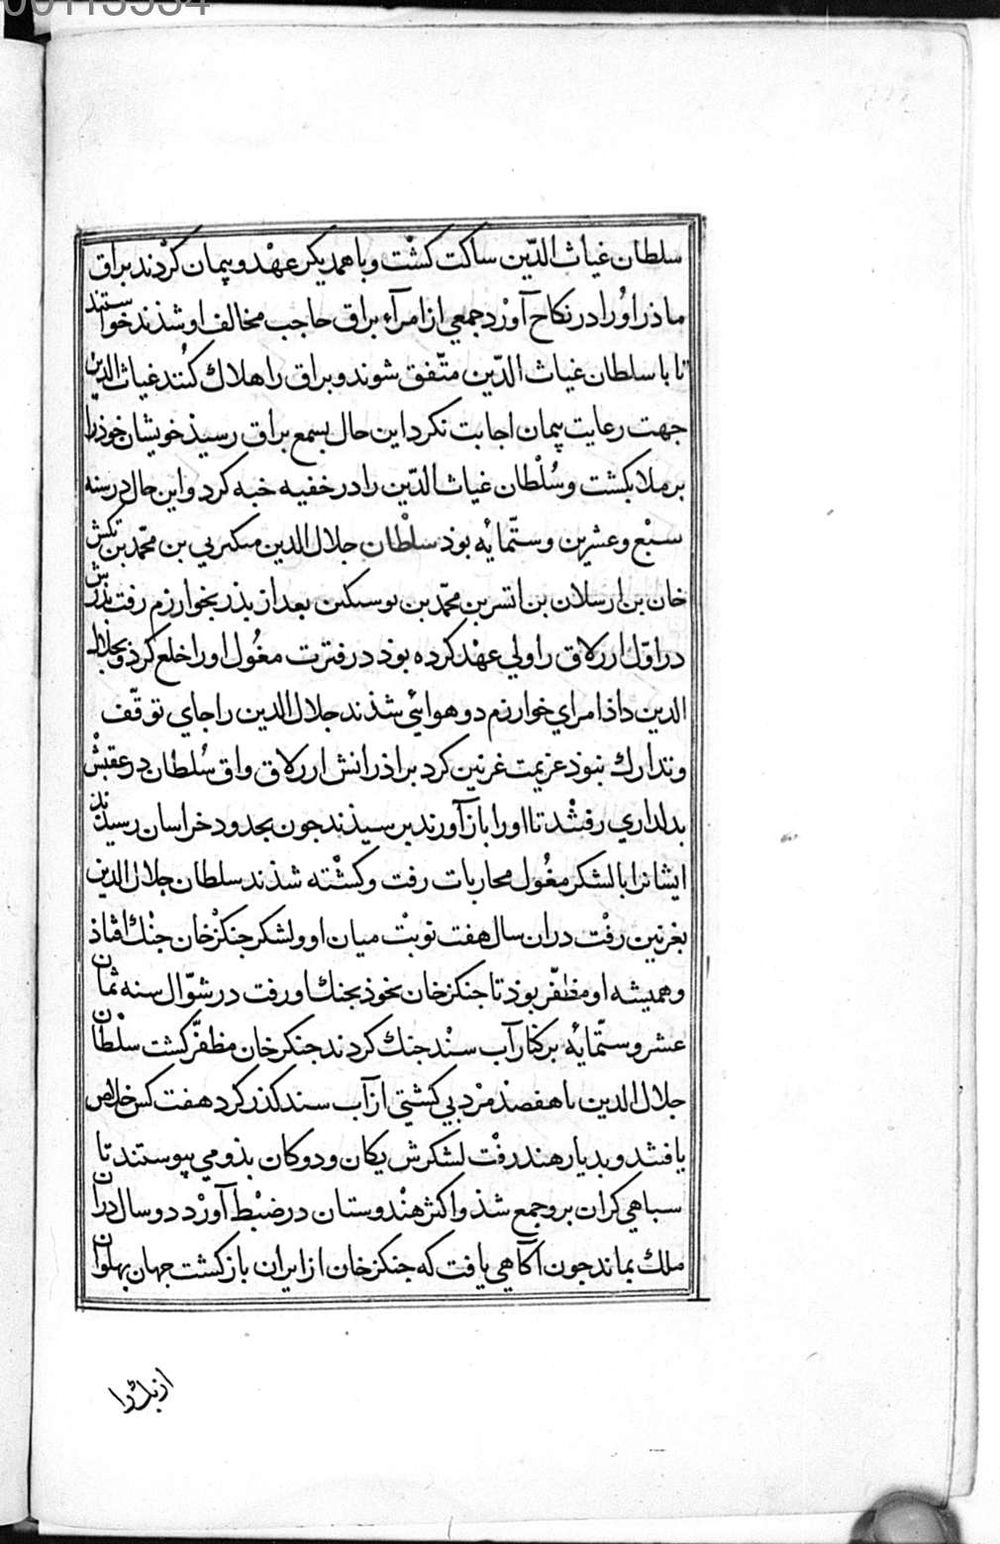 00113334
سلطان غیاث الدّین ساکت کشْت وباهمدیکر عهْد وپیمان کرْدند براق
ماذر اوُرا در نکاح آورْد جمعي از امرآء براق حاجب مخالف او شذند خواستند
تا با سلطان غیاث الدّین متّفق شوند و براق را هلاك کُنند غیاث الدین
جهت رعایت پیمان اجابت نکرد این حال بسمع براق رسیذ خویشان خوذرا
بر ملا بکشت و سُلْطان غیاث الدّین را در خفیه خبه کرد و این حال در سنه
سبْع وعشرین وستّمایه بوذ سلْطان جلال الدین منکبرني بن محمّد بن تکش
خان بن ارسلان بن اتسز بن محمّد بن نوستکین بعد از پذر بخوارزم رفت پذرش
در اوّل ارزلاق را ولي عهْد کرده بوذ در فترت مغُول اورا خلع کرذ و بجلال
الدین داذ امراي خوارزم دو هوائي شذند جلال الدین را جاي توقّف
وتدارك نبوذ عزیمت غزنین کرد براذرانش ارزلاق واق سُلطان در عقبشْ
بدلداري رفتْند تا اورا باز آورند نرسیذند جون بحدود خراسان رسیذند
ایشانرا با لشکر مغُول محاربات رفت وکشْته شذند سلطان جلال الدین
بغزنین رفْت دران سال هفت نوبتْ میان او و لشکر جنکزْخان جنْك افتاذ
وهمیشه او مظفّر بوذ تا جنکزخان بخوذ بجنك او رفت در شوّال سنه ثمان
عشر وستّمایه بر کنار آب سنْد جنك کردند جنکزخان مظفّر کشت سلْطان
جلال الدین با هفصذ مرْد بي کشتي از آب سند کذر کرد هفت کس خلاص
یافتند و بدیار هند رفْت لشکرش یکان و دوکان بذو مي پیوستند تا
سباهي کران برو جمع شذ و اکثر هنْدوستان در ضبْط آورْد دو سال دران
ملك بماند جون آکاهي یافت که جنکزخان از ایران بازکشت جهان بهلوان
ازبك را